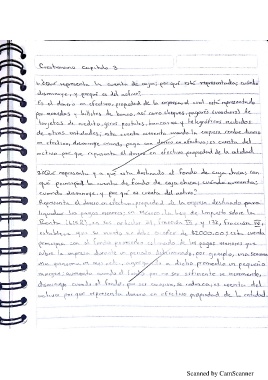 Cuestionario capítulo 3
1. ¿Qué representa la cuenta de caja; por qué está representado; cuándo
disminuye, y porqué es del activo?
Es el dinero en efectivo, propiedad de la empresa el cual está representado
por monedas y billetes de banco, así como cheques, pagarés (vouchers) de
tarjetas de crédito, giros postales, bancarios y telegráficos recibidos
de otras entidades; esta cuenta aumenta cuando la empresa recibe dinero
en efectivo, disminuye cuando paga con dinero en efectivo; es cuenta del
activo por que representa el dinero en efectivo propiedad de la entidad.
2. ¿Qué representa y a qué está destinado el fondo de caja chica; con
qué principal la cuenta de fondo de caja chica; cuándo aumenta;
cuándo disminuye, y por qué es cuenta del activo?
Representa dinero en efectivo, propiedad de la empresa, destinado para
liquidar los pagos menores en la Ley de Impuesto sobre la
Renta (LISR), en sus artículos 31, fracción III, y 172, fracción IV,
establece que su monto no debe exceder de $2000.00; esta cuenta
principia con el fondo calculado de los pagos menores que
cubre la empresa durante un periodo determinado, por ejemplo, una semana
una quincena o un mes, a dicho promedio un pequeño
margen; aumenta cuando el fondo por no ser suficiente se incrementa,
disminuye cuando el fondo, por ser excesivo, se reduce, es cuenta del
activo porque representa dinero en efectivo propiedad de la entidad.
Scanned by CamScanner